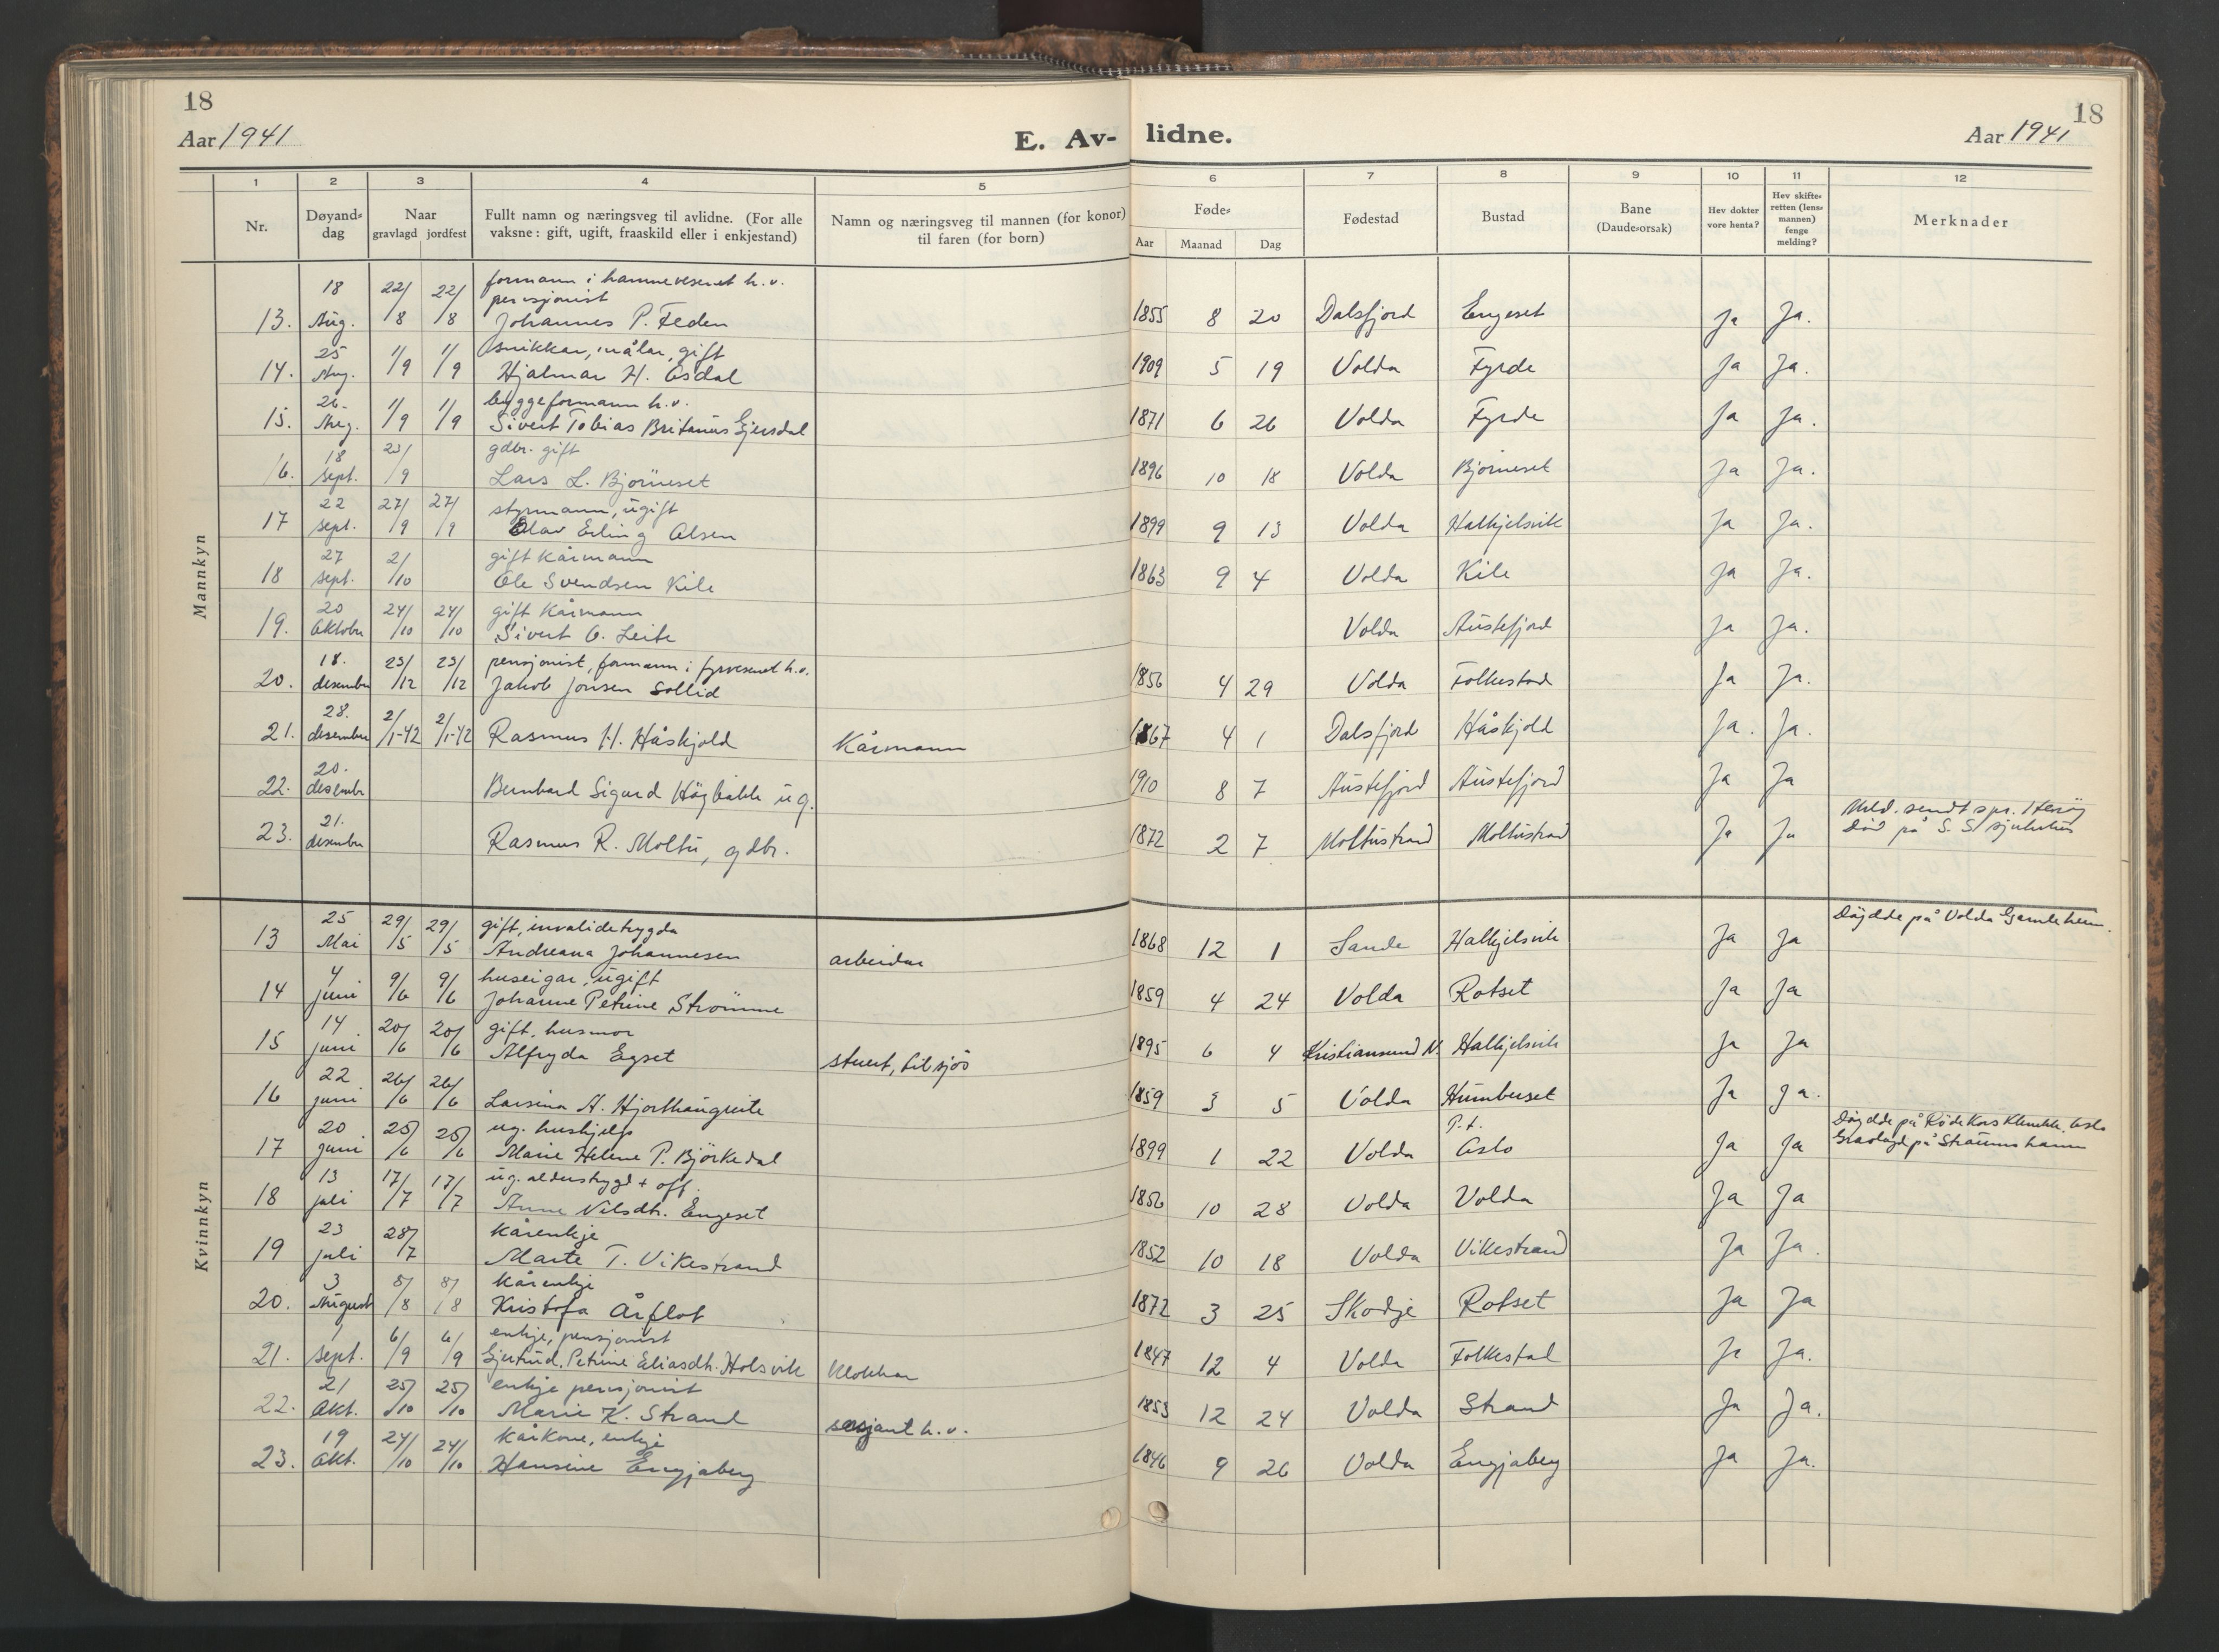 18
Aar 1941
E. Av-
lidne.
18
Aar 1941
1 2 3 4 5 6 7 8 9 10 11 12
Nr.
Døyand-
dag
Naar
gravlagd jordfest
Fullt namn og næringsveg til avlidne. (For alle
vaksne: gift, ugift, fraaskild eller i enkjestand)
Namn og næringsveg til mannen (for konor)
til faren (for born)
Føde-
Aar Maanad Dag
Fødestad
Bustad
Bane
(Daude-orsak)
Hev dokter
vore henta?
Hev skifte-
retten (lens-
mannen)
fenge
melding?
Merknader
Mannkyn
formann i hamnevesenet h.v.
pensjonist
13. 18 Aug. 22/8 22/8 Johannes P. Feden 1855 8 20 Dalsfjord Engeset Ja Ja.
snikkar, målar, gift
14. 25 Aug. 1/9 1/9 Hjalmar H. Osdal 1909 5 19 Volda Fyrde Ja Ja.
byggeformann h.v.
15. 26. Aug. 1/9 1/9 Sivert Tobias Britanus Gjersdal 1871 6 26 Volda Fyrde Ja Ja.
gdbr. gift
16. 18 sept. 23/9 Lars L. Bjørneset 1896 10 18 Volda Bjørneset Ja Ja.
styrmann, ugift
17 22 sept. 27/9 27/9 Olav Erling Olsen 1899 9 13 Volda Halkjelsvik Ja Ja.
gift kårmann
18 27 sept. 2/10 Ole Svendsen Kile 1863 9 4 Volda Kile Ja Ja.
gift kårmann
19. 20 Oktober 24/10 24/10 Sivert O. Leite Volda Austefjord Ja Ja.
pensjonist, formann i fyrvesenet h.v.
20. 18. desember 23/12 23/12 Jakob Jonsen Sollid 1856 4 29 Volda Folkestad Ja Ja.
21. 28. desember 2/1-42 2/1-42 Rasmus H. Håskjold Kårmann 1867 4 1 Dalsfjord Håskjold Ja. Ja.
22. 20. desember Bernhard Sigurd Høgbakk ug. 1910 8 7 Austefjord Austefjord Ja Ja
Meld. sendt spr. Herøy
23. 21. desember Rasmus R. Moltu, gdbr. 1872 2 7 Moltustrand Moltustrand Ja Ja Død på S. S. sjukehus
Kvinnkyn
gift, invalidetrygda
13 25 Mai 29/5 29/5 Andreana Johannesen arbeidar 1868 12 1 Sande Halkjelsvik Ja Ja Døydde på Volda Gamleheim.
huseigar, ugift
14 4 juni 9/6 9/6 Johanne Petrine Strømme 1859 4 24 Volda Rotset Ja Ja
gift, husmor
15 14 juni 20/6 20/6 Alfryda Egset stuert, til sjøs 1895 6 4 Kristiansund N. Halkjelsvik Ja Ja
16 22 juni 26/6 26/6 Larsina A. Hjorthaugreite 1859 3 5 Volda Humberset Ja Ja.
ug. hushjelp P.t. Døydde på Røde Kors Klinikk, Oslo
17 20 juni 25/6 25/6 Marie Helene P. Bjørkedal 1899 1 22 Volda Oslo Ja Ja Gravlagd på Straumshamn
ug. alderstrygd + off.
18 13 juli 17/7 17/7 Anne Nilsdtr. Engeset 1856 10 28 Volda Volda Ja Ja
Kårenkje
19 23 juli 28/7 Marte T. Vikestrand 1852 10 18 Volda Vikestrand Ja Ja.
Kårenkje
20. 3 August 8/8 8/8 Kristofa Årflot 1872 3 25 Skodje Rotset Ja Ja
enkje, pensjonist
21. 1 sept. 6/9 6/9 Gjertrud Petrine Eliasdtr. Holsvik Klokkar 1847 12 4 Volda Folkestad Ja Ja.
enkje pensjonist
22. 21 Okt. 25/10 25/10 Marie K. Strand sersjant h.v. 1853 12 24 Volda Strand Ja Ja.
Kårkone, enkje
23. 19 Okt. 24/10 24/10 Hansine Engjaberg 1846 9 26 Volda Engjaberg Ja Ja.